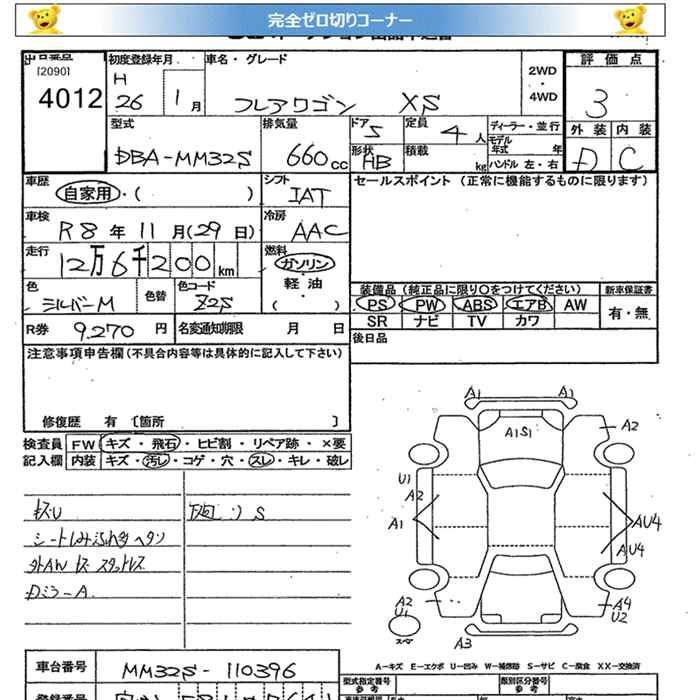 完全ゼロ切りコーナー
[2090]
4012
初度登録年月
H
26 1月
車名・グレード
フレアワゴン XS
2WD
・
4WD
評価点
3
外装 内装
D C
型式
DBA-MM32S
排気量
660cc
ドア 5
形状 HB
定員 4人
積載 kg
ディーラー・並行
モデル年式 年
ハンドル 左・右
車歴
自家用・( )
シフト
IAT
セールスポイント (正常に機能するものに限ります)
車検
R8年 11月(29日)
冷房
AAC
走行
12万6千200km
燃料
ガソリン
軽油
( )
色
シルバーM
色替
色コード
Z2S
装備品 (純正品に限り○をつけてください)
新車保証書
PS PW ABS エアB AW
SR ナビ TV カワ
有・無
R券 9.270円
名変通知期限 月 日
後日品
注意事項申告欄(不具合内容等は具体的に記入して下さい)
修復歴 有 〔箇所 〕
検査員記入欄
FW キズ・飛石・ヒビ割・リペア跡・×要
内装 キズ・汚し・コゲ・穴・スレ・キレ・破し
キズU
下廻り S
シートしみ
外AW キズ スタッドレス
Dミラ-A
A1 A1
A1S1
A2
U1
A2
A1
AU4
AU4
A2
U1
A4
U2
A3
A-キズ E-エクボ U-凹み W-補修跡 S-サビ C-腐食 XX-交換済
車台番号
MM32S-110396
型式指定番号
参考
類別区分番号
参考
登録番号